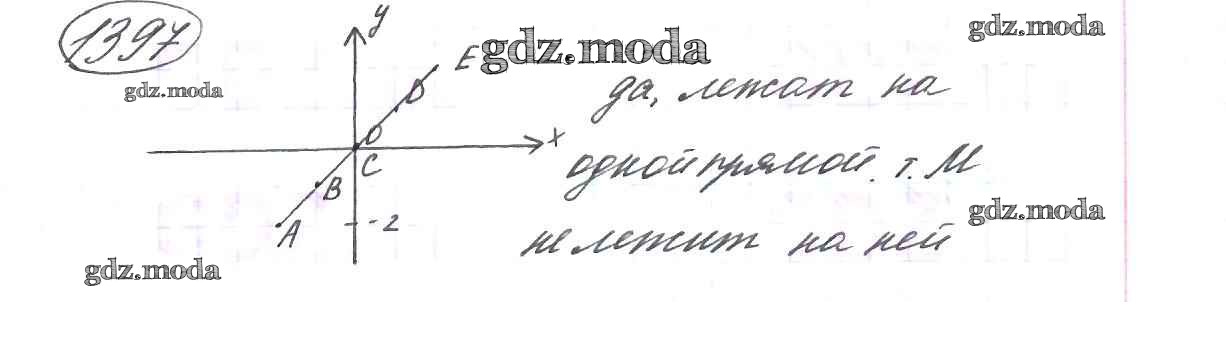 1397
y
E
gdz.moda
gdz.moda
gdz.moda
D
да, лежат на
O
x
C
одной прямой. т. М
B
gdz.moda
A
-2
не лежит на ней
gdz.moda